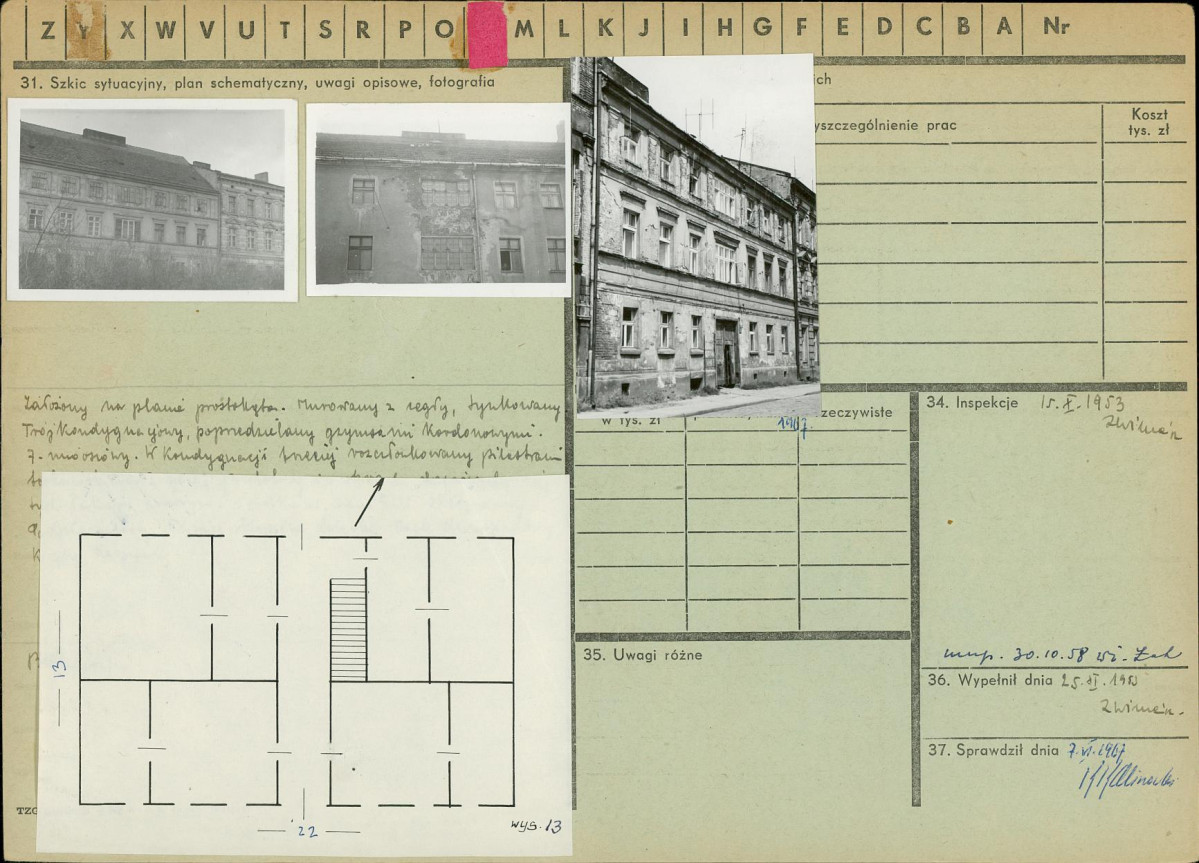 Z Y X W V U T S R P O M L K J I H G F E D C B A Nr
31. Szkic sytuacyjny, plan schematyczny, uwagi opisowe, fotografia
ich
yszczególnienie prac
Koszt
tys. zł
Założony na planie prostokąta. Murowany z cegły, tynkowany
Trójkondygnacjowy, poprzedzielany gzymsami kordonowymi.
7. osiowy. W kondygnacji trzeciej rozczłonkowany pilastrami
w tys. zł
zeczywiste
1967.
34. Inspekcje 15.X.1953
insp. 30.10.58
35. Uwagi różne
36. Wypełnił dnia 25.XI.1953
37. Sprawdził dnia 7.VI.1967
KKalinowski
13
22
wys. 13
TZG